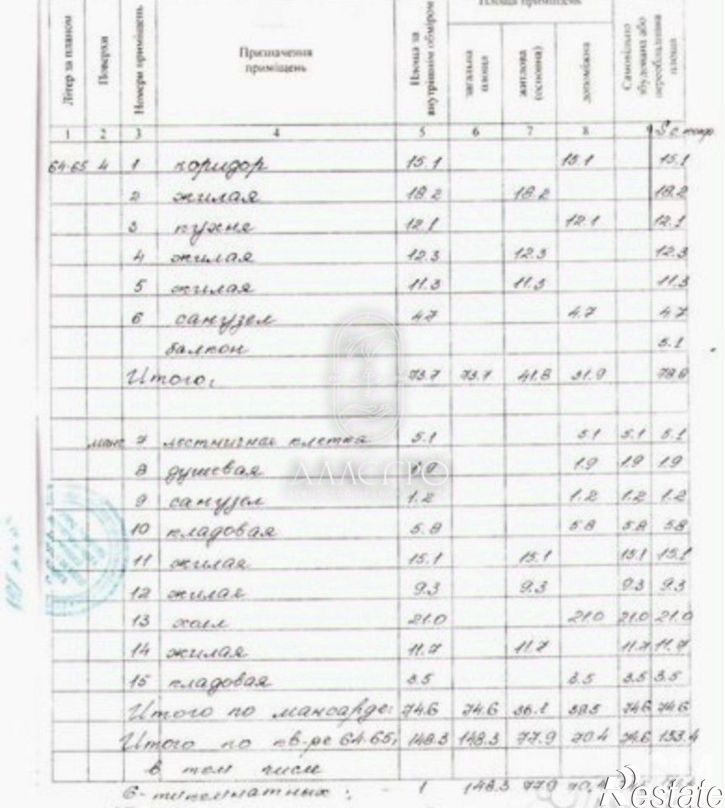 Площа приміщень
Літер за планом
Поверхи
Номери приміщень
Призначення приміщень
Площа за внутрішнім обміром
загальна площа
житлова (основна)
допоміжна
Самовільно збудована або переобладнана площа
1 2 3 4 5 6 7 8 9
64-65 4 1 коридор 15.1 15.1 15.1
2 жилая 18.2 18.2 18.2
3 кухня 12.1 12.1 12.1
4 жилая 12.3 12.3 12.3
5 жилая 11.3 11.3 11.3
6 санузел 4.7 4.7 4.7
балкон 5.1
Итого: 73.7 73.7 41.8 31.9 78.8
манс 7 лестничная клетка 5.1 5.1 5.1 5.1
8 душевая 1.9 1.9 1.9 1.9
9 санузел 1.2 1.2 1.2 1.2
10 кладовая 5.8 5.8 5.8 5.8
11 жилая 15.1 15.1 15.1 15.1
12 жилая 9.3 9.3 9.3 9.3
13 холл 21.0 21.0 21.0 21.0
14 жилая 11.7 11.7 11.7 11.7
15 кладовая 3.5 3.5 3.5 3.5
Итого по мансарде: 74.6 74.6 36.1 38.5 74.6 74.6
Итого по кв-ре 64-65, 148.3 148.3 77.9 70.4 74.6 153.4
в том числе
6-тикомнатных: - 1 148.3 77.9 70.4
АЛЛЕГРО
Restate